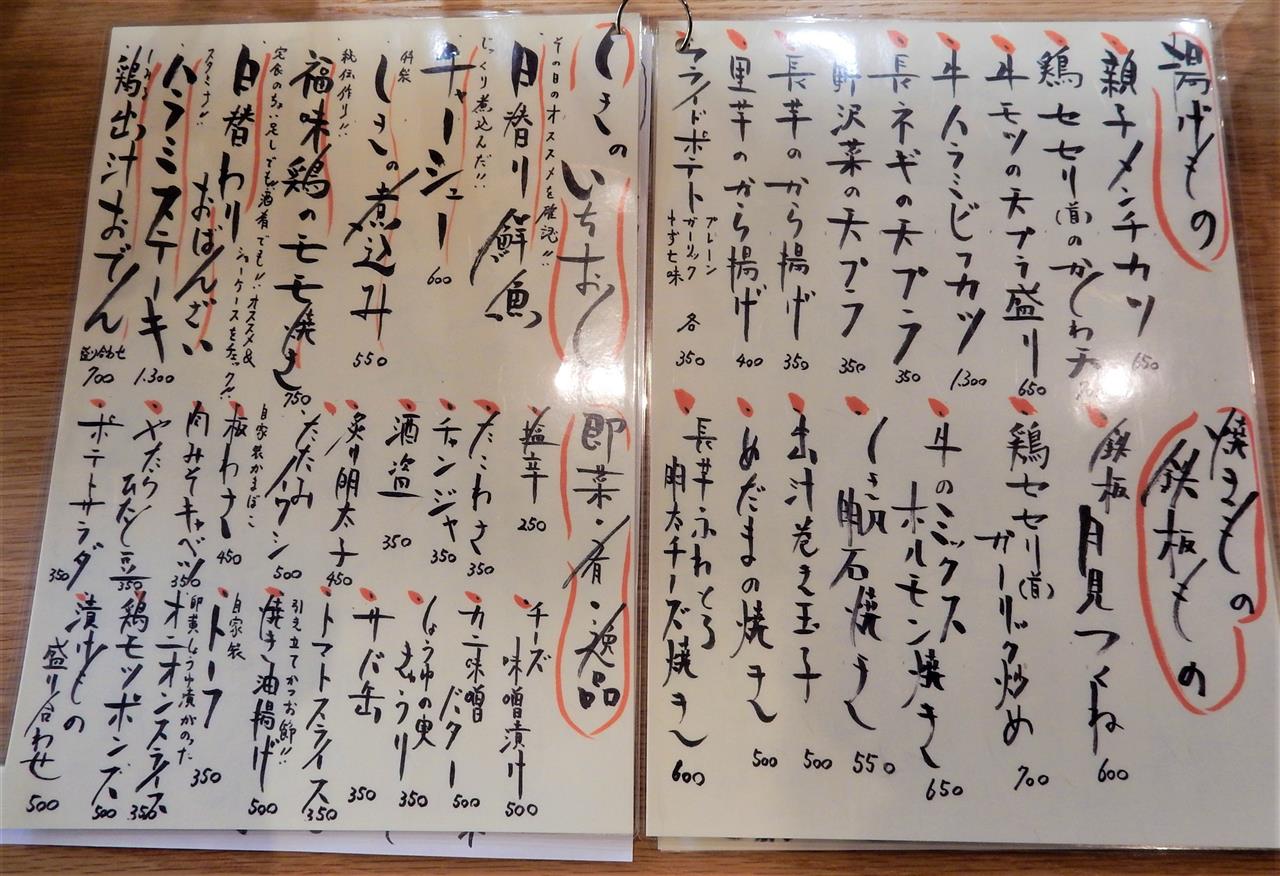 揚げもの
親子メンチカツ 650
鶏セセリ(首)のかしわ天
牛モツの天プラ盛り 650
牛ハラミビフカツ 1.300
長ネギの天プラ 350
野沢菜の天プラ 350
長芋のから揚げ 350
里芋のから揚げ 400
フライドポテト プレーン ガーリック ゆず七味 各 350
焼きもの
鉄板もの
鉄板月見つくね 600
鶏セセリ(首)
ガーリック炒め 700
牛のミックス
ホルモン焼き 650
しき風明石焼き 550
出汁巻き玉子 500
めだまの焼き 500
長芋ふわとろ
明太チーズ焼き 600
しきのいちおし
その日のオススメを確認!!
日替り鮮魚
じっくり煮込んだ!!
チャーシュー 600
しきの煮込み 550
秘伝作り!!
福味鶏のモモ焼き 750
定食のちょい足しでも酒肴でも!!オススメ&
ショーケースを チェック!!
日替わり
おばんざい
スタミナ!!
ハラミステーキ 1.300
しみる
鶏出汁おでん 盛り合わせ 700
即菜・肴・逸品
塩辛 250
たこわさ 350
チャンジャ 350
酒盗 350
炙り明太子 450
たたみイワシ 500
自家製かまぼこ
板わさ 450
肉みそキャベツ 350
やたらひたし豆 350
ポテトサラダ 350
チーズ
味噌漬け 500
カニ味噌
バター 500
しょうゆの実
きゅうり 350
サバ缶 350
トマトスライス 350
引き立てかつお節!!
焼き油揚げ 500
自家製
トーフ 350
卵黄しょうゆ漬がのった
オニオンスライス 350
鶏モツポンズ 500
漬けもの
盛り合わせ 500